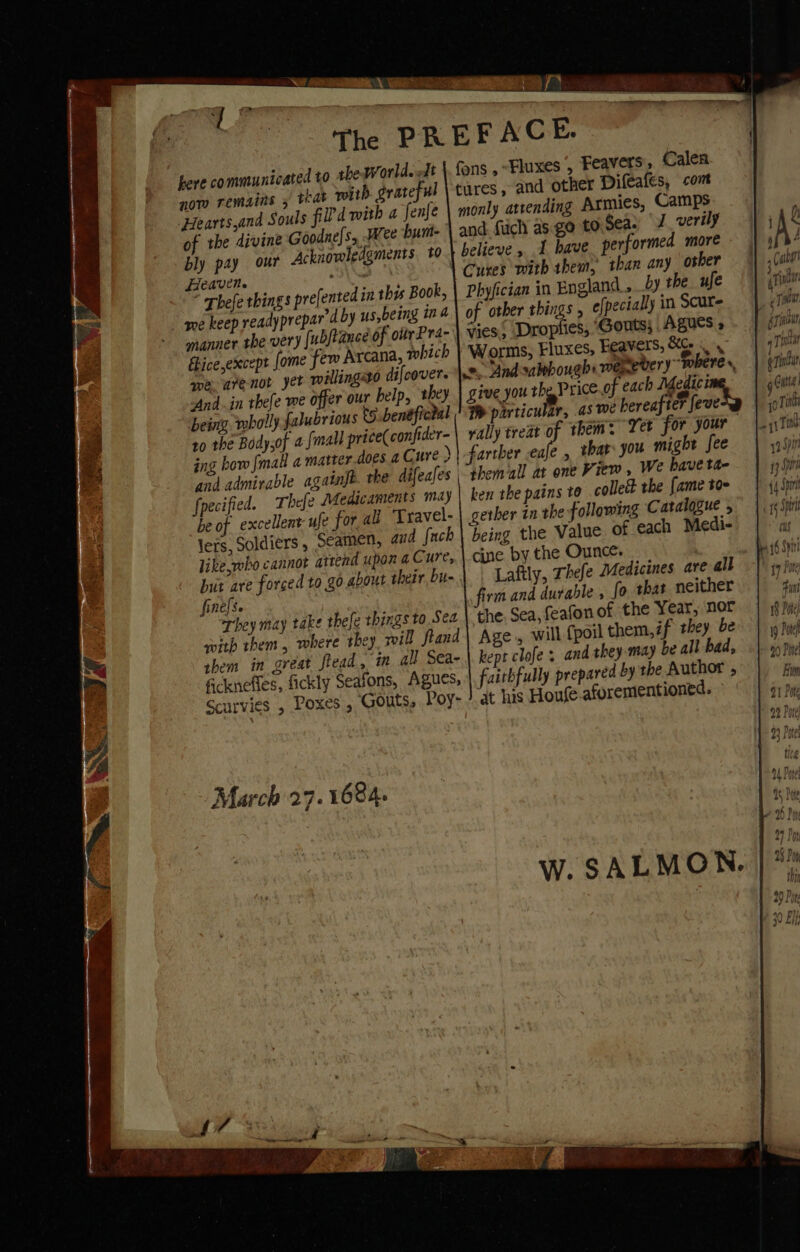 The PREFACE.
here communicated to the World. It
now remains, that with grateful
Hearts, and Souls fill'd with a ſenſe
of the divine Goodneſs, Wee hum-
bly pay our Acknowledgments to
Heaven.
Theſe things preſented in this Book,
we keep ready prepar'd by us, being in a
manner the very ſubſtance of our Pra-
ctice, except ſome few Arcana, which
we are not yet willing to diſcover.
And in theſe we offer our help, they
being wholly ſalubrious & beneficial
to the Body, of a ſmall price (conſider-
ing how ſmall a matter does a Cure)
and admirable againſt the diſeaſes
ſpecified. Theſe Medicaments may
be of excellent uſe for all Travel-
lers, Soldiers, Seamen, and ſuch
like, who cannot attend upon a Cure,
but are forced to go about their bu-
ſineſs.
They may take theſe things to Sea
with them, where they will ſtand
them in great ſtead, in all Sea-
ſickneſſes, ſickly Seaſons, Agues,
Scurvies, Poxes, Gouts, Poy-
ſons, Fluxes, Feavers, Calen-
tures, and other Diſeaſes, com
monly attending Armies, Camps
and ſuch as go to Sea. I verily
believe, I have performed more
Cures with them, than any other
Phyſician in England, by the uſe
of other things, eſpecially in Scur-
vies, Dropſies, Gouts, Agues,
Worms, Fluxes, Feavers, &c.
And although we every where,
give you the Price of each Medicine
particular, as we hereafter ſeve-
rally treat of them: Yet for your
farther eaſe, that you might ſee
them all at one View, We have ta-
ken the pains to collect the ſame to-
gether in the following Catalogue,
being the Value of each Medi-
cine by the Ounce.
Laſtly, Theſe Medicines are all
firm and durable, ſo that neither
the Sea, ſeaſon of the Year, nor
Age, will ſpoil them, if they be
kept cloſe; and they may be all had,
faithfully prepared by the Author,
at his Houſe aforementioned.
March 27. 1684.
W. SALMON.